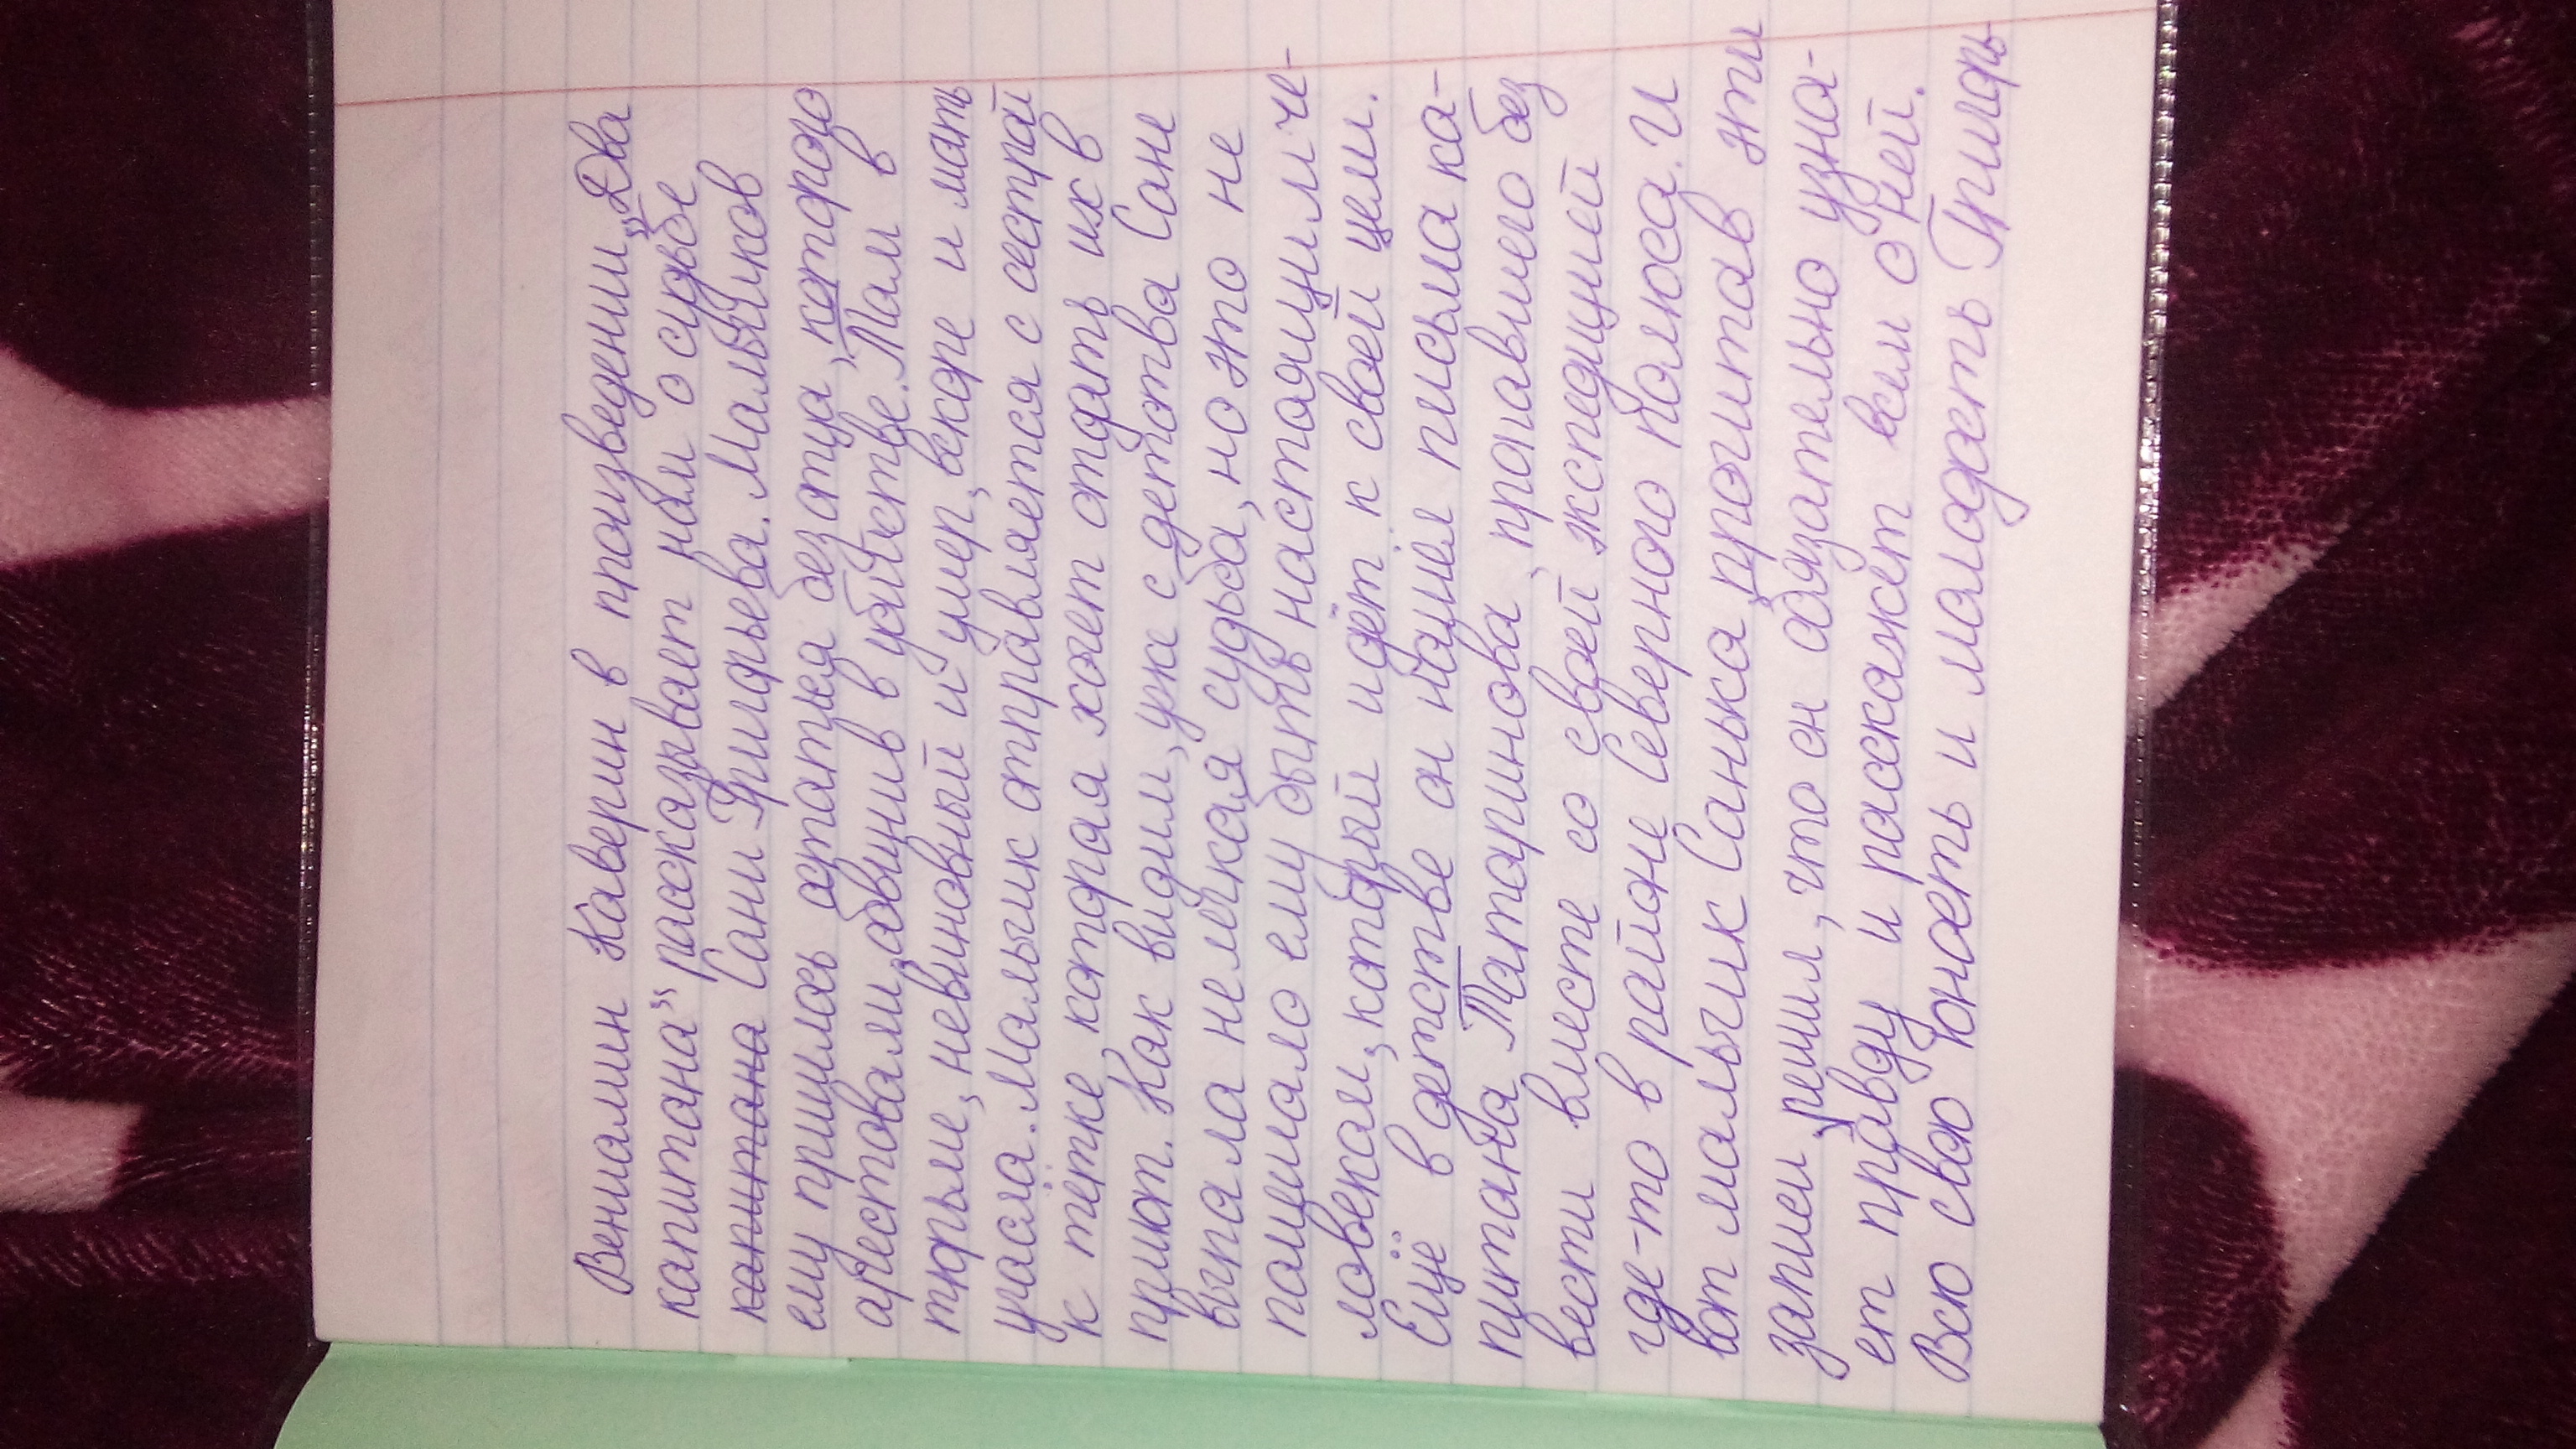 Вениамин Каверин в произведении „Два
капитана" рассказывает нам о судьбе
капитана Сани Григорьева. Мальчиков
ему пришлось остаться без отца, которого
арестовали, обвинив в убийстве. Там в
тюрьме, невиновный и умер, вскоре и мать
угасла. Мальчик отправляется с сестрой
к тётке, которая хочет отдать их в
приют. Как видим, уже с детства Сане
выпала нелёгкая судьба, но это не
помешало ему быть настоящим че-
ловеком, который идёт к своей цели.
Ещё в детстве он нашёл письма ка-
питана Татаринова, пропавшего без
вести вместе со своей экспедицией
где-то в районе Северного Полюса. И
вот мальчик Санька, прочитав эти
записи, решил, что он обязательно узна-
ет правду и расскажет всем о ней.
Всю свою юность и молодость Григорь